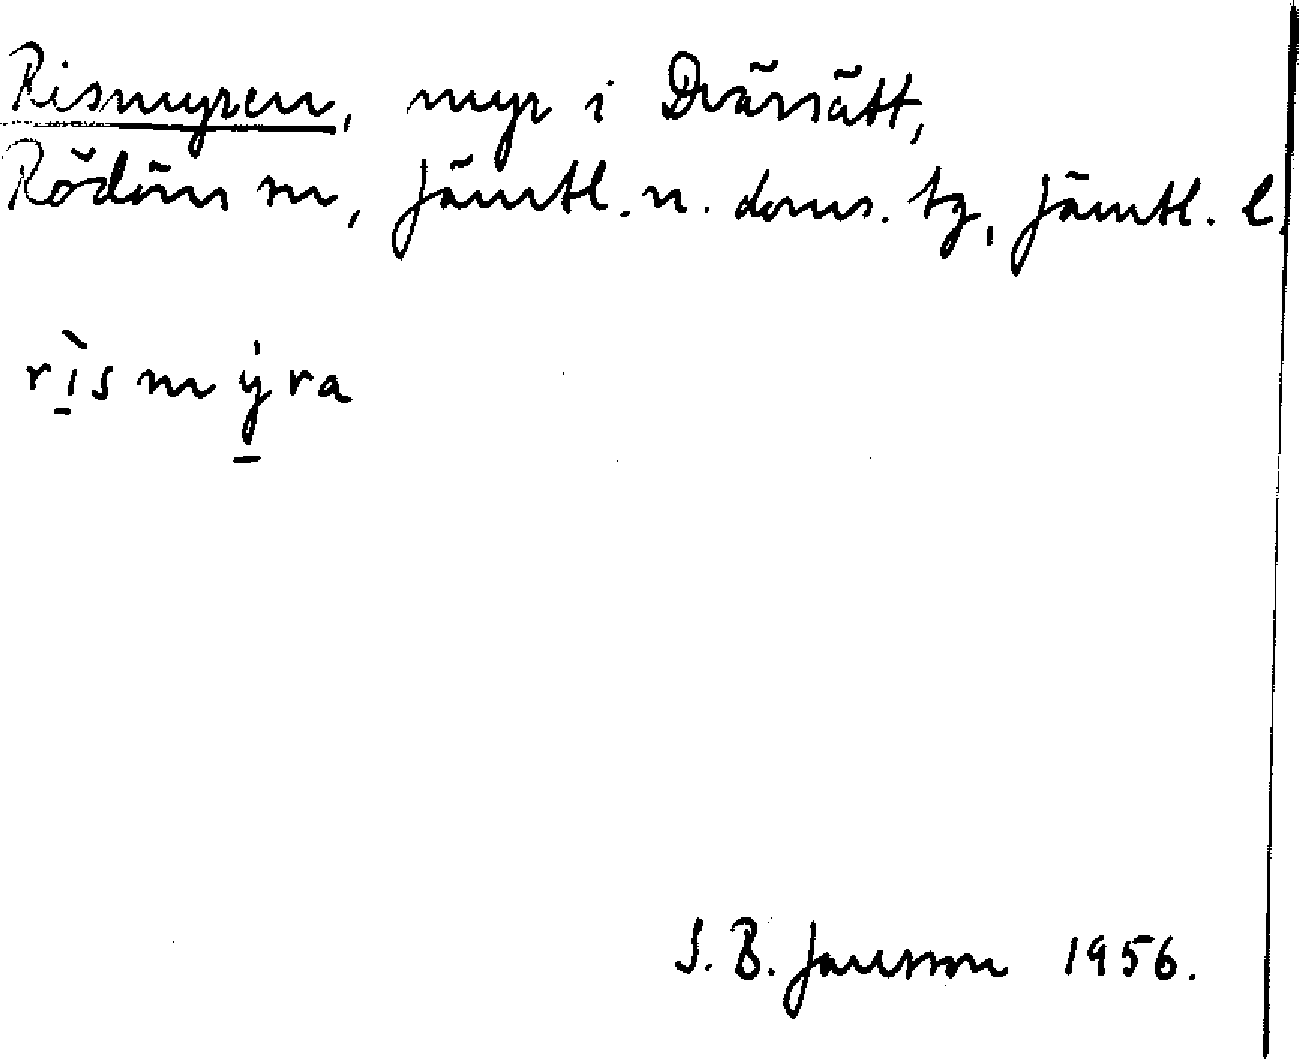 Rismyren, myr i Dvärsätt,
Rödöns sn, Jämtl. n. doms. tg, Jämtl. l.
rìs mýra
S. B. Jansson 1956.